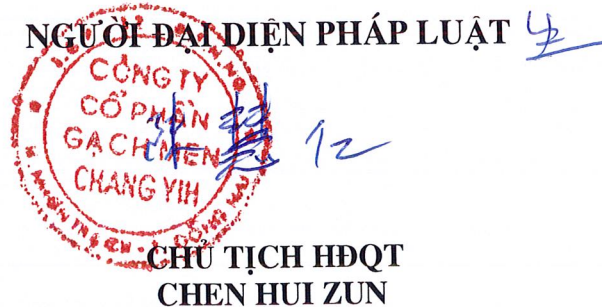 NGƯỜI ĐẠI DIỆN PHÁP LUẬT
CÔNG TY
CỔ PHẦN
GẠCH MEN
CHANG YIH
CHỦ TỊCH HĐQT
CHEN HUI ZUN